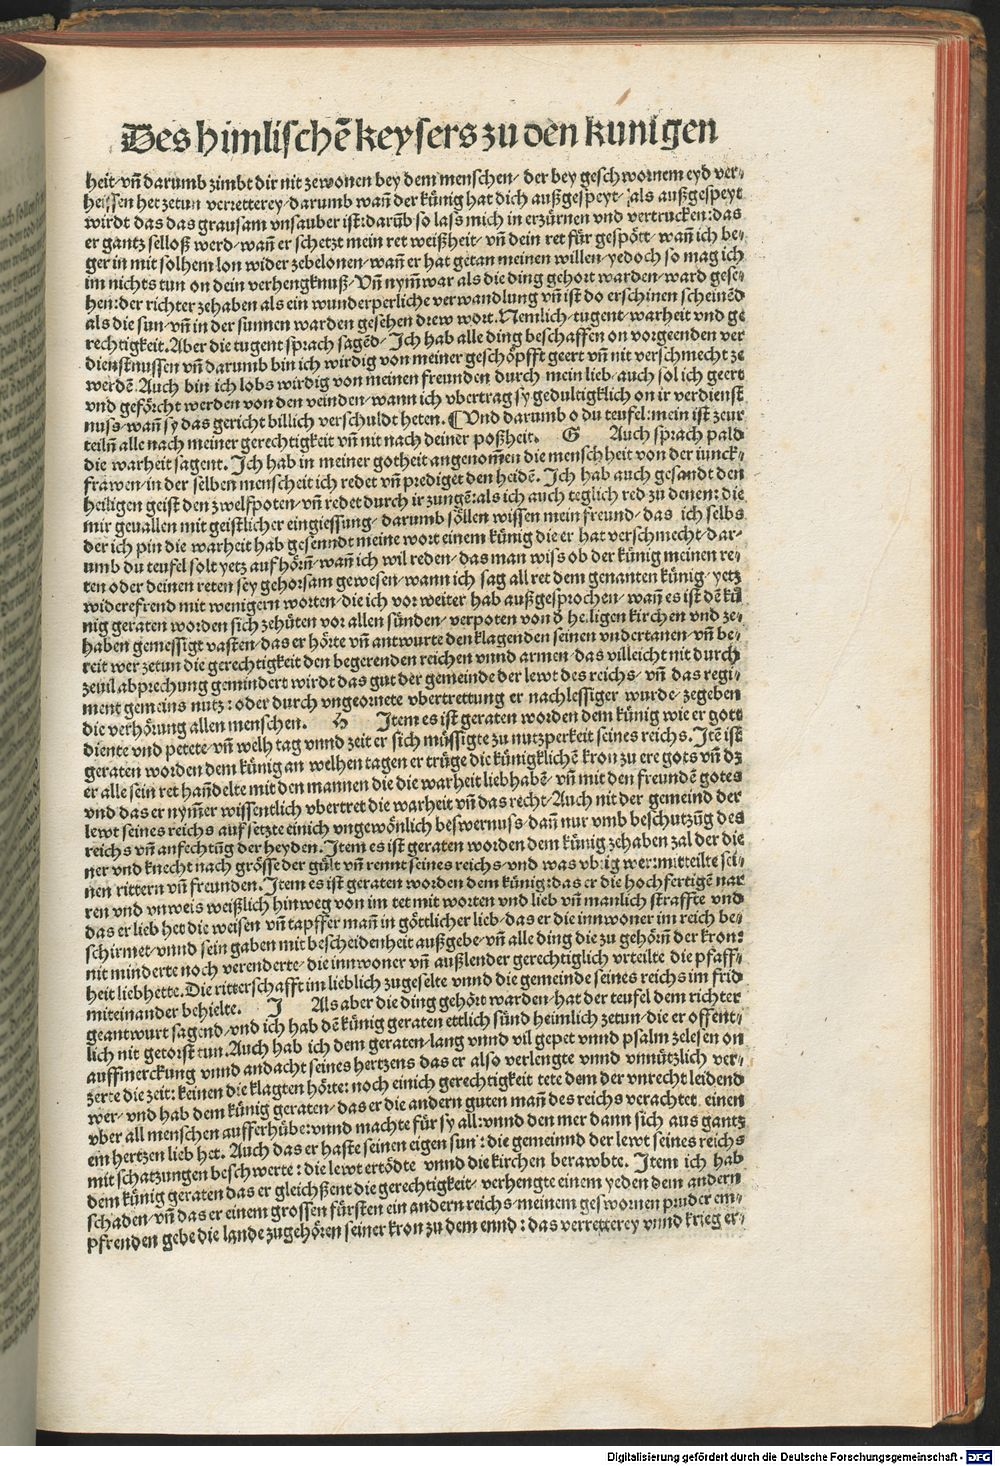 Des himlischē keysers zu den kunigen
heit/ vn̄ darumb zimbt dir nit zewonen bey dem menschen/ der bey geschwornem eyd ver⸗
heissen het zetun verretterey/ darumb wan̄ der künig hat dich außgespeyt/ als außgespeyt
wirdt das das grausam vnsauber ist: darūb so lass mich in erzürnen vnd vertrucken: das
er gantz selloß werd/ wan̄ er schetzt mein ret weißheit/ vn̄ dein ret für gespött/ wan̄ ich be⸗
ger in mit solhem lon wider zebelonen/ wan̄ er hat getan meinen willen/ yedoch so mag ich
im nichts tun on dein verhengknuß/ Vn̄ nym̄ war als die ding gehort warden/ ward gese⸗
hen: der richter zehaben als ein wunderperliche verwandlung vn̄ ist do erschinen scheinēd
als die sun/ vn̄ in der sunnen warden gesehen drew wort. Nemlich/ tugent/ warheit vnd ge
rechtigkeit. Aber die tugent sprach sagēd/ Ich hab alle ding beschaffen on vorgeenden ver
dienstnussen vn̄ darumb bin ich wirdig von meiner geschöpfft geert vn̄ nit verschmecht ze
werdē. Auch bin ich lobs wirdig von meinen freunden durch mein lieb/ auch sol ich geert
vnd geförcht werden von den veinden/ wann ich vbertrag sy gedultigklich on ir verdienst
nuss/ wan̄ sy das gericht billich verschuldt heten. ¶ Vnd darumb o du teufel: mein ist zeur
teiln̄ alle nach meiner gerechtigkeit vn̄ nit nach deiner poßheit. G Auch sprach pald
die warheit sagent. Ich hab in meiner gotheit angenom̄en die menscheit von der iunck⸗
frawen/ in der selben menscheit ich redet vn̄ prediget den heidē. Ich hab auch gesandt den
heiligen geist den zwelfpoten/ vn̄ redet durch ir zungē: als ich auch teglich red zu denen: die
mir geuallen mit geistlicher eingiessung/ darumb söllen wissen mein freund/ das ich selbs
der ich pin die warheit hab gesenndt meine wort einem künig die er hat verschmecht/ dar⸗
umb du teufel solt yetz auf hörn̄/ wan̄ ich wil reden/ das man wiss ob der künig meinen re⸗
ten oder deinen reten sey gehorsam gewesen/ wann ich sag all ret dem genanten künig/ yetz
widerefrend mit wenigern worten/ die ich vor weiter hab außgesprochen/ wan̄ es ist dē kü
nig geraten worden sich zehüten vor allen sünden/ verpoten von d̄ heiligen kirchen vnd ze⸗
haben gemessigt vasten/ das er hörte vn̄ antwurte den klagenden seinen vndertanen/ vn̄ be⸗
reit wer zetun die gerechtigkeit den begerenden reichen vnnd armen/ das villeicht nit durch
zeuil abprechung gemindert wirdt das gut der gemeinde der lewt des reichs/ vn̄ das regi⸗
ment gemeins nutz: oder durch vngeornete vbertrettung er nachlessiger wurde/ zegeben
die verhörung allen menschen. H Item es ist geraten worden dem künig wie er gott
diente vnd petete/ vn̄ welh tag vnnd zeit er sich müssigte zu nutzperkeit seines reichs. Itē ist
geraten worden dem künig an welhen tagen er trüge die künigklichē kron zu ere gots vn̄ dz
er alle sein ret han̄delte mit den mannen die die warheit liebhabē/ vn̄ mit den freundē gotes
vnd das er nym̄er wissentlich vbertret die warheit vn̄ das recht/ Auch nit der gemeind der
lewt seines reichs auf setzte einich vngewönlich beswernuss/ dan̄ nur vmb beschutzūg des
reichs vn̄ anfechtūg der heyden. Item es ist geraten worden dem künig zehaben zal der die
ner vnd knecht nach grösse der gült vn̄ rennt seines reichs/ vnd was vbrig wer: mitteilte sei⸗
nen rittern vn̄ freunden. Item es ist geraten worden dem künig: das er die hochfertigē nar
ren vnd vnweis weißlich hinweg von im tet mit worten vnd lieb vn̄ manlich straffte vnd
das er lieb het die weisen vn̄ tapffer man̄ in göttlicher lieb/ das er die innwoner im reich be⸗
schirmet/ vnnd sein gaben mit bescheidenheit außgebe/ vn̄ alle ding die zu gehörn̄ der kron:
nit minderte noch verenderte/ die innwoner vn̄ außlender gerechtiglich vrteilte die pfaff⸗
heit liebhette. Die ritterschafft im lieblich zugeselte vnnd die gemeinde seines reichs im frid
miteinander behielte. I Als aber die ding gehört warden/ hat der teufel dem richter
geantwurt sagend/ vnd ich hab dē künig geraten ettlich sünd heimlich zetun/ die er offent⸗
lich nit getorst tun. Auch hab ich dem geraten/ lang vnnd vil gepet vnnd psalm zelesen on
auffmerckung vnnd andacht seines hertzens das er also verlengte vnnd vnnützlich ver⸗
zerte die zeit: keinen die klagten hörte: noch einich gerechtigkeit tete dem der vnrecht leidend
wer/ vnd hab dem künig geraten/ das er die andern guten man̄ des reichs verachtet einen
vber all menschen aufferhübe: vnnd machte für sy all: vnnd den mer dann sich aus gantz
em hertzen lieb het. Auch das er haste seinen eigen sun: die gemeinnd der lewt seines reichs
mit schatzungen beschwerte: die lewt ertödte vnnd die kirchen berawbte. Item ich hab
dem künig geraten das er gleichßent die gerechtigkeit/ verhengte einem yeden dem andern
schaden/ vn̄ das er einem grossen fürsten ein andern reichs/ meinem geswornen pruder em⸗
pfrenden gebe die lande zugehören seiner kron zu dem ennd: das verretterey vnnd krieg er⸗
Digitalisierung gefördert durch die Deutsche Forschungsgemeinschaft - DFG